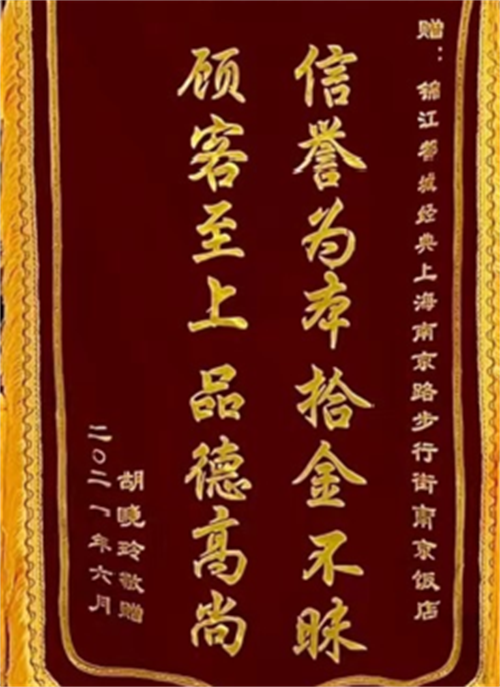 赠：锦江都城经典上海南京路步行街南京饭店
信誉为本 拾金不昧
顾客至上 品德高尚
胡晓玲敬赠
二〇二一年六月